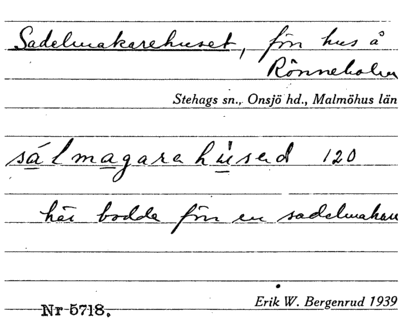 Sadelmakarehuset, förr hus å
Rönneholm
Stehags sn., Onsjö hd., Malmöhus län
sálmagarahúsed 120
här bodde förr en sadelmakare
Nr 5718.
Erik W. Bergenrud 1939